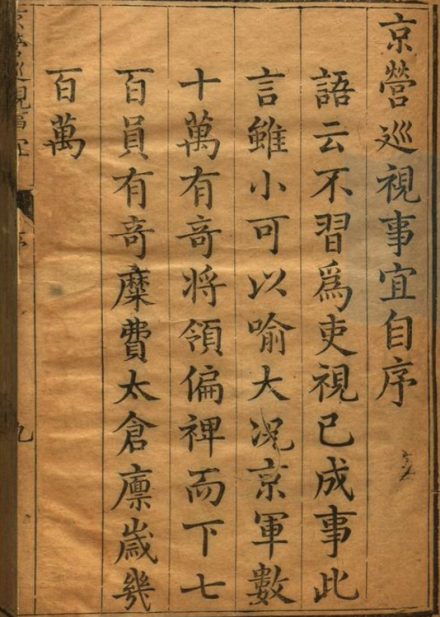 京營巡視事宜自序
語云不習為吏視已成事此
言雖小可以喻大况京軍數
十萬有奇將領偏裨而下七
百員有奇糜費太倉廪歲幾
百萬
京營巡視事宜
序
九